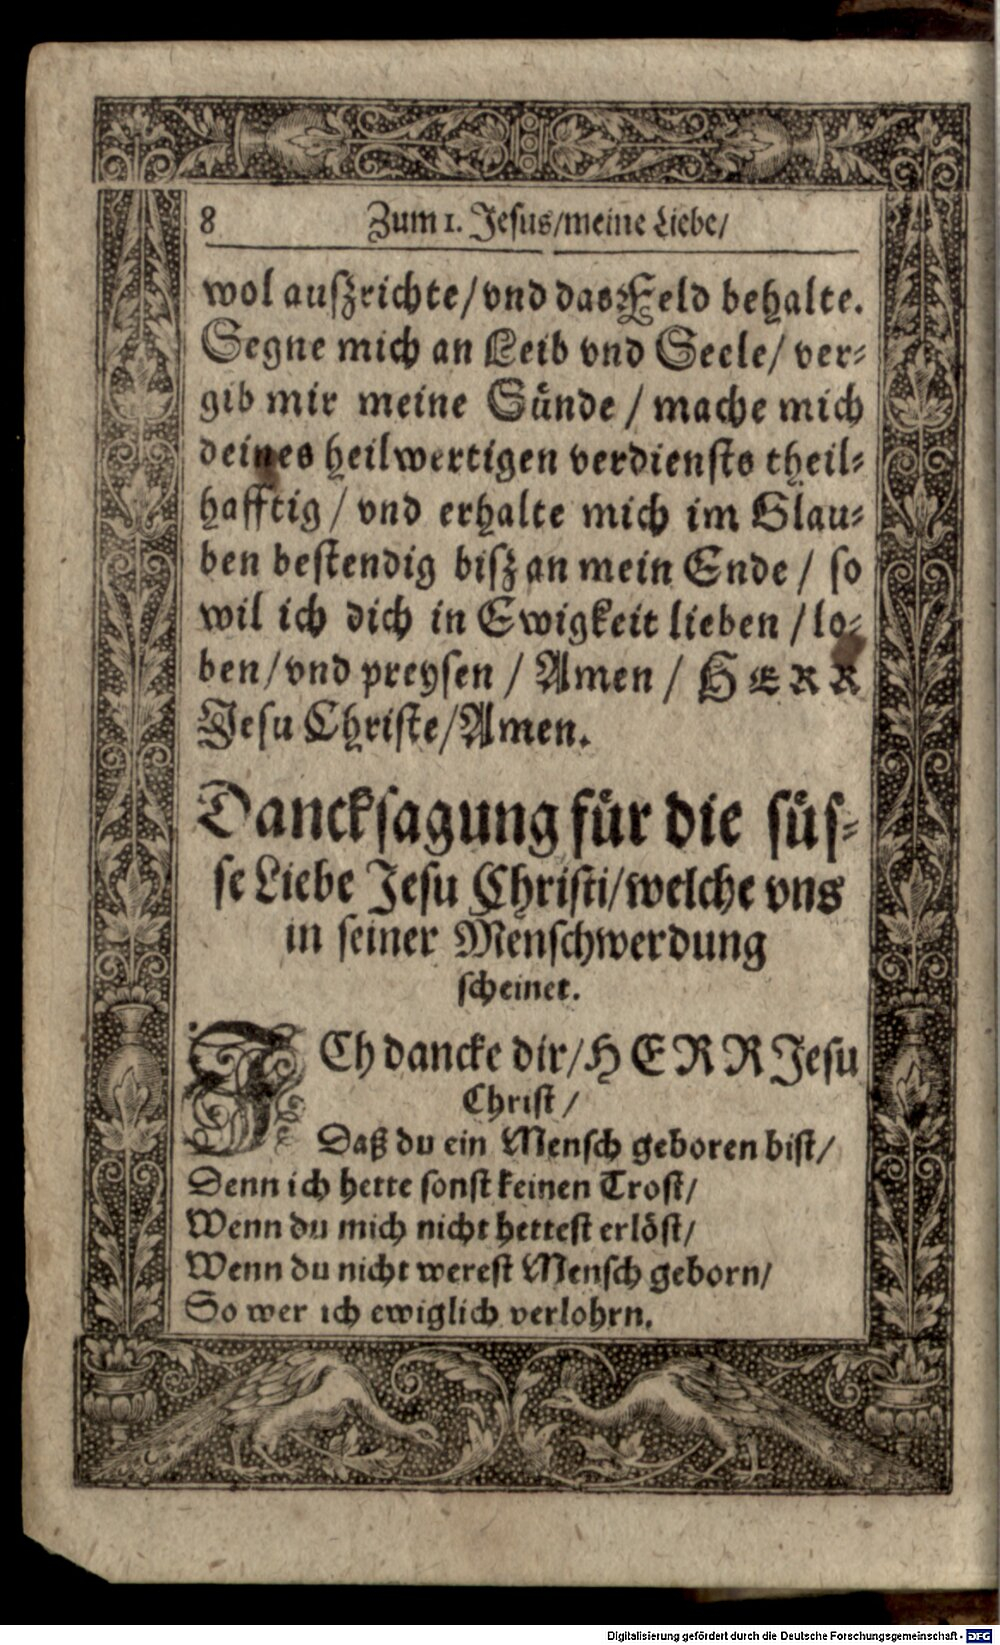 8 Zum 1. Jesus/meine Liebe/
wol auszrichte/vnd das Feld behalte.
Segne mich an Leib vnd Seele/ ver-
gib mir meine Sünde / mache mich
deines heilwertigen verdiensts theil-
hafftig / vnd erhalte mich im Glau-
ben bestendig bisz an mein Ende / so
wil ich dich in Ewigkeit lieben / lo-
ben/vnd preysen / Amen / HERR
Jesu Christe/Amen.
Dancksagung für die süs-
se Liebe Jesu Christi/welche vns
in seiner Menschwerdung
scheinet.
ICh dancke dir/HERR Jesu
Christ /
Daß du ein Mensch geboren bist/
Denn ich hette sonst keinen Trost/
Wenn du mich nicht hettest erlöst/
Wenn du nicht werest Mensch geborn/
So wer ich ewiglich verlohrn.
Digitalisierung gefördert durch die Deutsche Forschungsgemeinschaft - DFG